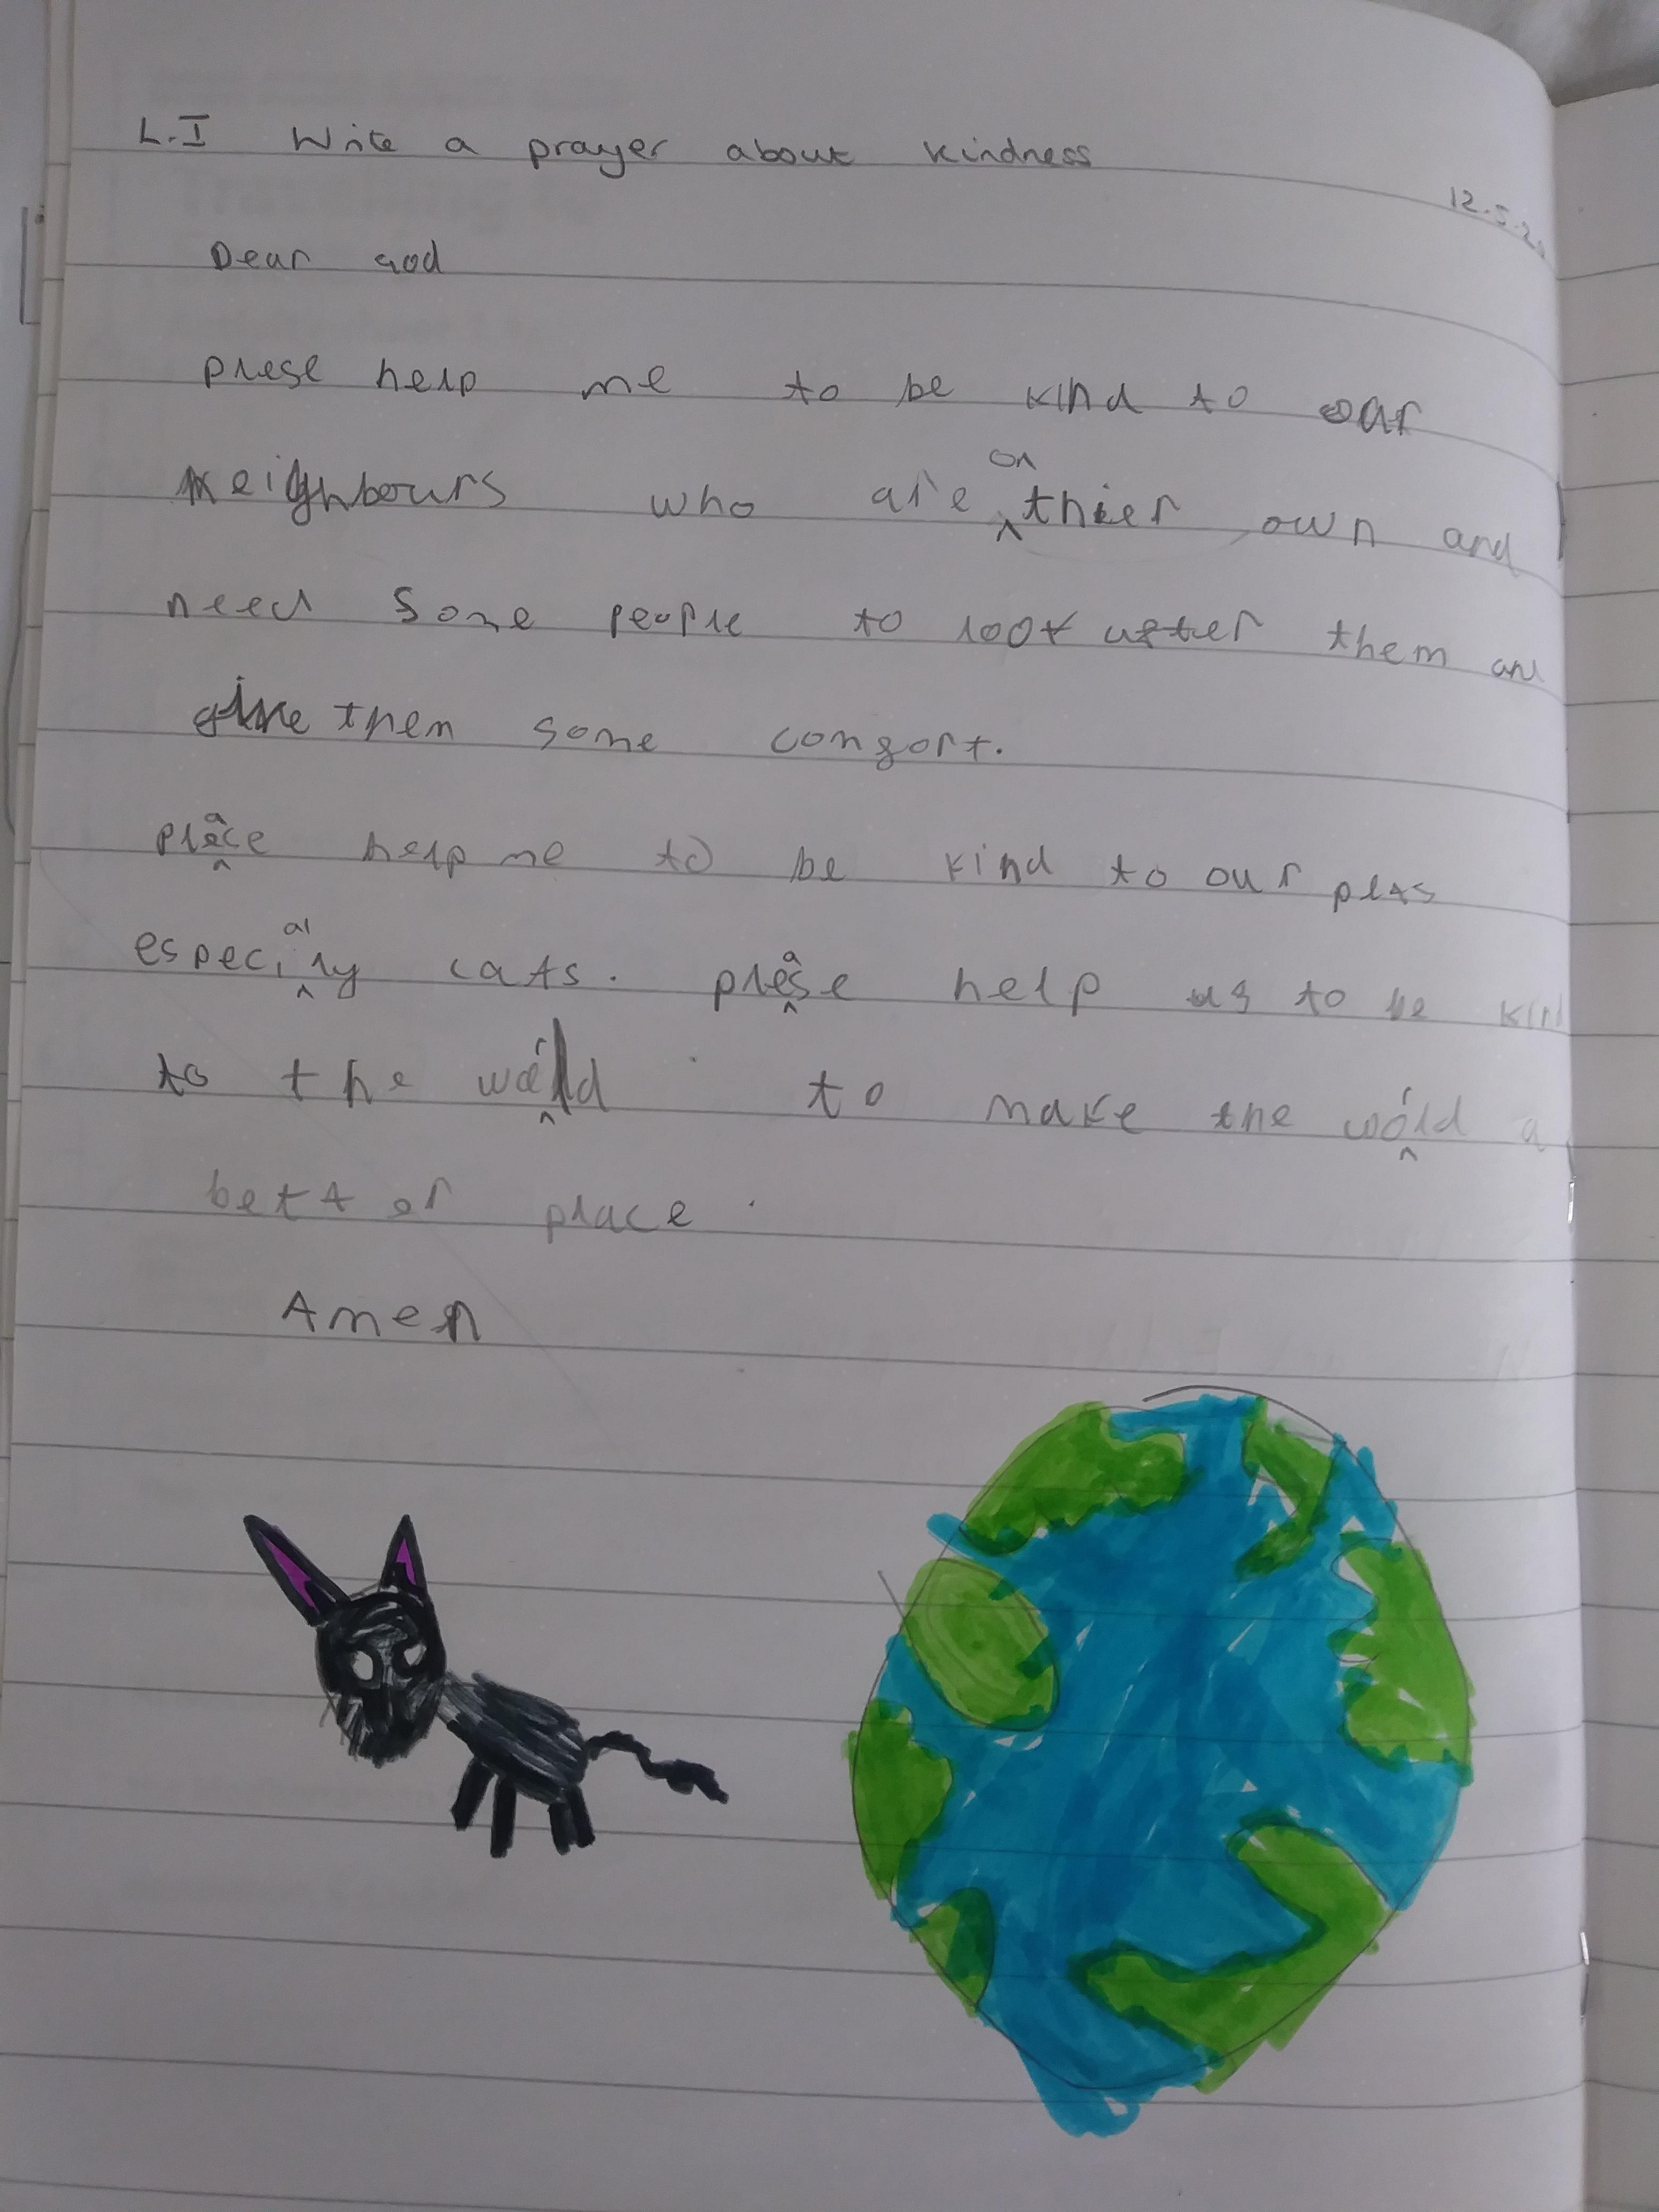 L.I Write a prayer about kindness
12.5.20
Dear god
plese help me to be kind to our
neighbours who are on thier own and
need some people to look after them and
give them some comfort.
pleace help me to be kind to our pets
especialy cats. please help us to be kind
to the world to make the world a
better place.
Amen